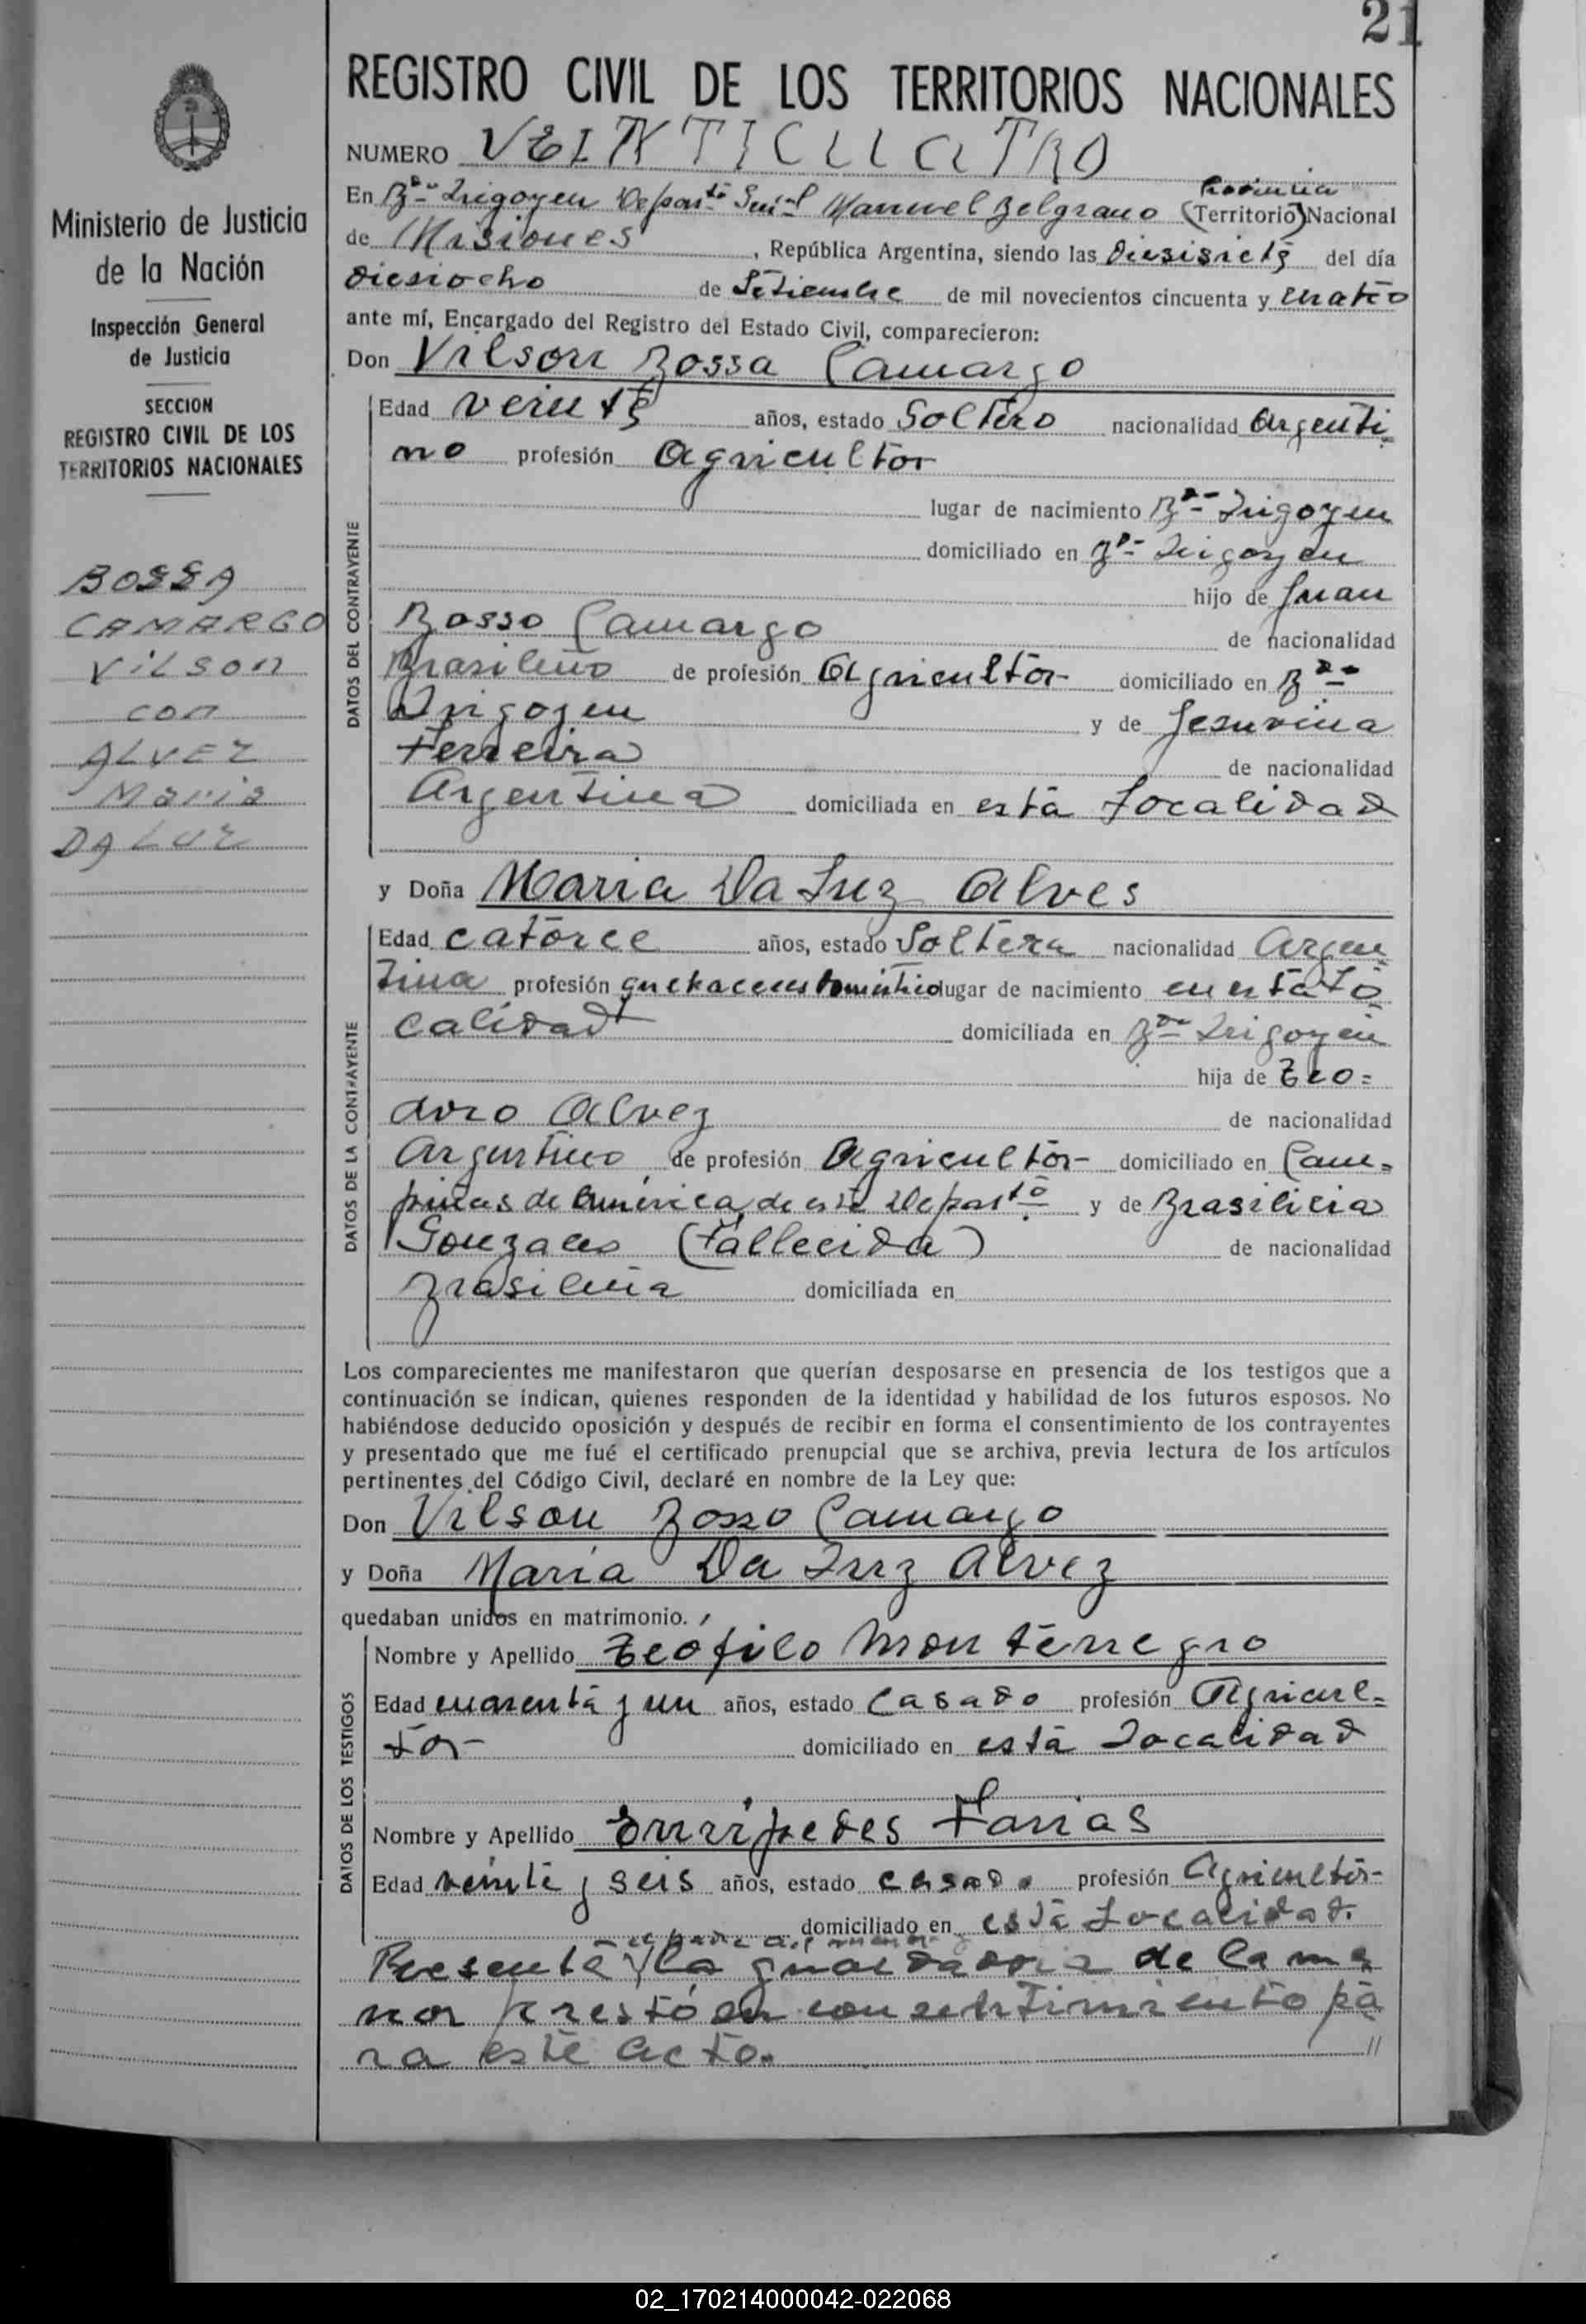 21
REGISTRO CIVIL DE LOS TERRITORIOS NACIONALES
NUMERO VEINTICUATRO
Provincia
En Bdo Irigoyen Departo Genral Manuel Belgrano (Territorio) Nacional
de Misiones, República Argentina, siendo las diesisiete del día
diesiocho de Setiembre de mil novecientos cincuenta y cuatro
ante mí, Encargado del Registro del Estado Civil, comparecieron:
Don Vilson Bossa Camargo
Edad veinte años, estado Soltero nacionalidad Argenti
no profesión Agricultor
lugar de nacimiento Bdo Irigoyen
domiciliado en Bdo Irigoyen
hijo de Juan
Bosso Camargo de nacionalidad
Brasileño de profesión Agricultor domiciliado en Bdo
Irigoyen y de Jesuvina
Ferreira de nacionalidad
Argentina domiciliada en está Localidad
DATOS DEL CONTRAYENTE
y Doña Maria Da Luz Alves
Edad catorce años, estado Soltera nacionalidad Argen
tina profesión quehaceres domésticos lugar de nacimiento en esta Lo
calidad domiciliada en Bdo Irigoyen
hija de Teo=
doro Alvez de nacionalidad
Argentino de profesión Agricultor domiciliado en Cam=
pinas de América, de este Departo y de Brasilicia
Gonzales (Fallecida) de nacionalidad
Brasileña domiciliada en
DATOS DE LA CONTRAYENTE
Los comparecientes me manifestaron que querían desposarse en presencia de los testigos que a
continuación se indican, quienes responden de la identidad y habilidad de los futuros esposos. No
habiéndose deducido oposición y después de recibir en forma el consentimiento de los contrayentes
y presentado que me fué el certificado prenupcial que se archiva, previa lectura de los artículos
pertinentes del Código Civil, declaré en nombre de la Ley que:
Don Vilson Bosso Camargo
y Doña Maria Da Luz Alvez
quedaban unidos en matrimonio.
Nombre y Apellido Teófilo Monterregro
Edad cuarenta y un años, estado Casado profesión Agricul=
tor domiciliado en está Localidad
Nombre y Apellido Eurípedes Farias
Edad veinte y seis años, estado casado profesión Agricultor
domiciliado en está Localidad.
DATOS DE LOS TESTIGOS
el padre del menor y
Presente la guardadora de la me
nor prestó su consentimiento pa
ra este acto. //
Ministerio de Justicia
de la Nación
Inspección General
de Justicia
SECCION
REGISTRO CIVIL DE LOS
TERRITORIOS NACIONALES
BOSSA
CAMARGO
VILSON
con
ALVEZ
Maria
DA LUZ
02_170214000042-022068